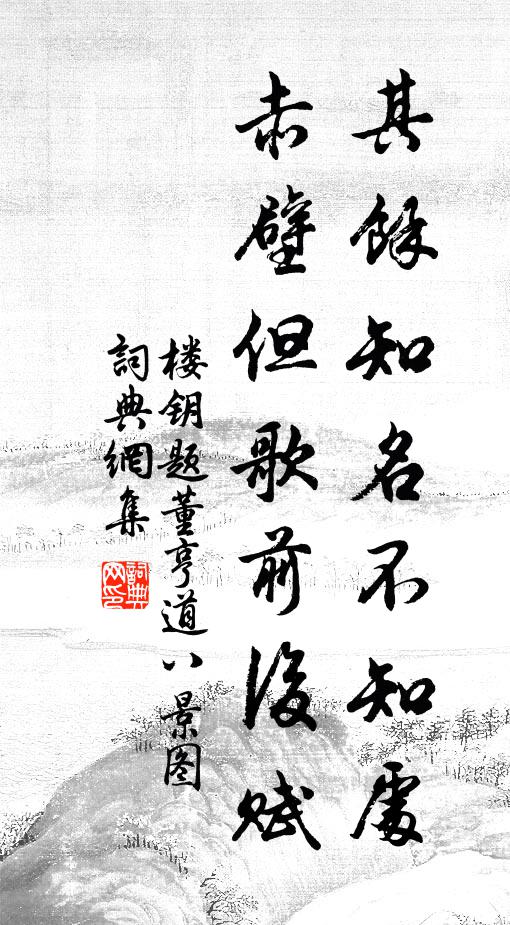 其餘知名不知處
赤壁但歌前後賦
楼钥题董亨道八景图
詞典網集
詞典网印